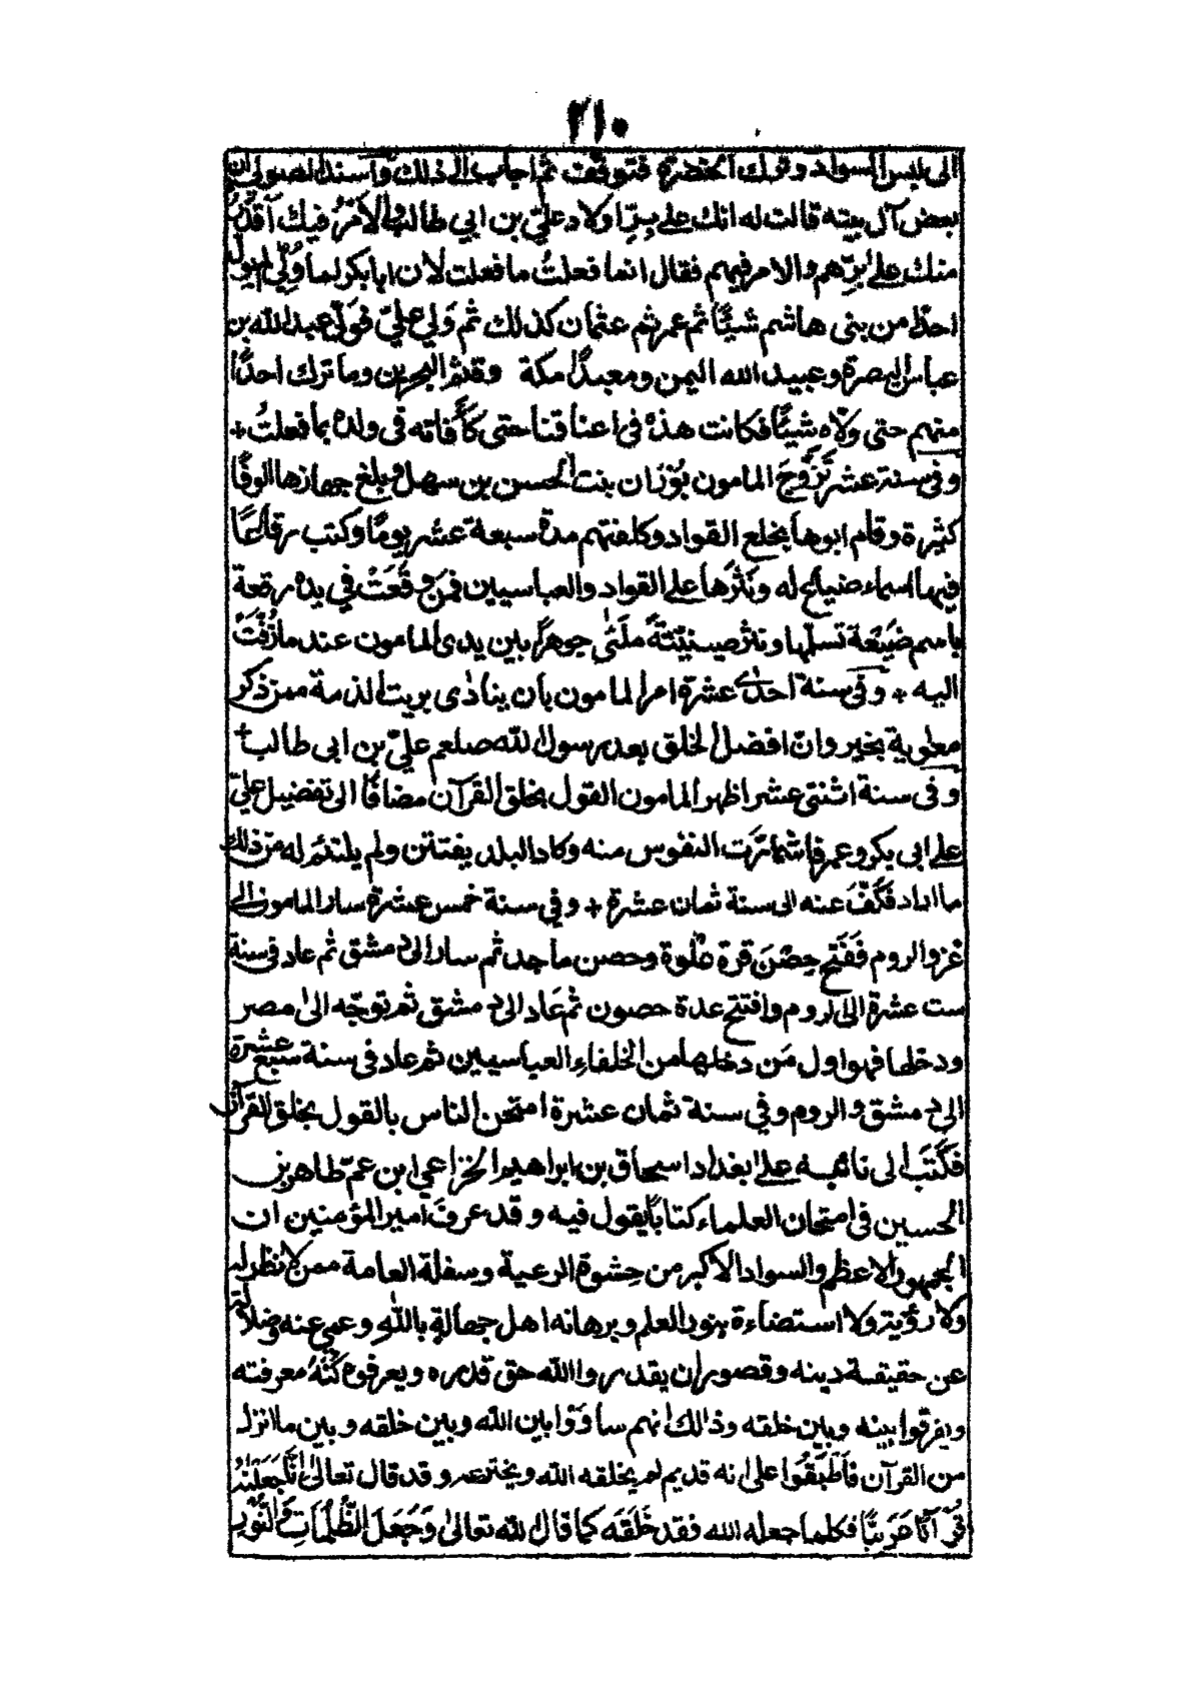 ٢١٠
الى لبس السواد وترك الخضرة فتوقف ثم اجاب الى ذلك وأسند الصولي ان
بعض آل بيته قالت له انك على بِرِّ اولاد عليّ بن ابي طالب والاَمْرُ فيك اَقْدَرُ
منك على بِرِّهم والامر فيهم فقال انما فعلتُ ما فعلت لان ابا بكر لما وُلِّي لم يولّ
احدًا من بني هاشم شيئًا ثم عمر ثم عثمان كذلك ثم وَلي عليّ فولّى عبد الله بن
عباس البصرة وعبيد الله اليمن ومعبدًا مكة وقثم البحرين وما ترك احدًا
منهم حتى ولّاه شيئًا فكانت هذه في اعناقنا حتى كَأفاته في ولده بما فعلتُ +
وفي سنة عشر تَزَوَّجَ المامون بُوْرَان بنت الحسن بن سهل وبلغ جهازها الوفًا
كثيرة وقام ابوها بخلع القواد وكلفتهم مدة سبعة عشر يومًا وكتب رقاعًا
فيها اسماء ضياع له ونَثَرَها على القواد والعباسيين فمَن وقَعَتْ في يده رقعة
باسم ضَيْعَة تسلّمها ونثر صينيّةً ملَئٰى جوهرًا بين يدي المامون عند ما زُفَّتْ
اليه + وفي سنة احدى عشرة امر المامون بان ينادٰى بريت الذمة ممن ذكر
معٰوية بخير وانّ افضل الخلق بعد رسول الله صلعم عليّ بن ابى طالب +
وفى سنة اثنتى عشر اظهر المامون القول بخلق القرآن مضافًا الى تفضيل عليّ
على ابى بكر وعمر فاشمأزّت النفوس منه وكاد البلد يفتتن ولم يلتئم له من ذلك
ما اراد فكَفَّ عنه الى سنة ثمان عشرة + وفي سنة خمس عشرة سار المامون الى
غزو الروم ففَتح حِصْنَ قرة عَنْوة وحصن ماجد ثم سار الى دمشق ثم عاد فى سنة
ست عشرة الى الروم وافتتح عدة حصون ثم عَاد الى دمشق ثم توجّه الىٰ مصر
ودخلها فهو اول مَن دخلها من الخلفاء العباسيين ثم عاد فى سنة سبع عشرة
الى دمشق والروم وفي سنة ثمان عشرة امتحن الناس بالقول بخلق القرآن
فكَتَبَ الى نائبه على بغداد اسحاق بن ابراهيم الخزاعي ابن عمّ طاهر بن
الحسين فى امتحان العلماء كتابًا يقول فيه وقد عرفَ امير المؤمنين ان
الجمهور الاعظم والسواد الاكبر من حِشْوة الرعية وسفلة العامة ممن لا نظر له
ولا رؤية ولا استضاءة بنور العلم وبرهانه اهل جهالةٍ بالله وعمى عنه وضلالة
عن حقيقة دينه وقصور ان يقدروا الله حق قدره ويعرفوه كُنْهَ معرفته
ويفرقوا بينه وبين خلقه وذلك انهم ساوَوْا بين الله وبين خلقه وبين ما انزل
من القرآن فاَطْبَقُوا على انه قديم لم يخلقه الله ويخترعه وقد قال تعالىٰ اِنَّا جَعَلْنٰهُ
قُرْآنًا عَرَبِيًّا فكلما جعله الله فقد خَلَقَه كما قال الله تعالىٰ وَجَعَلَ الظُّلُمَاتِ وَالنُّوْرَ